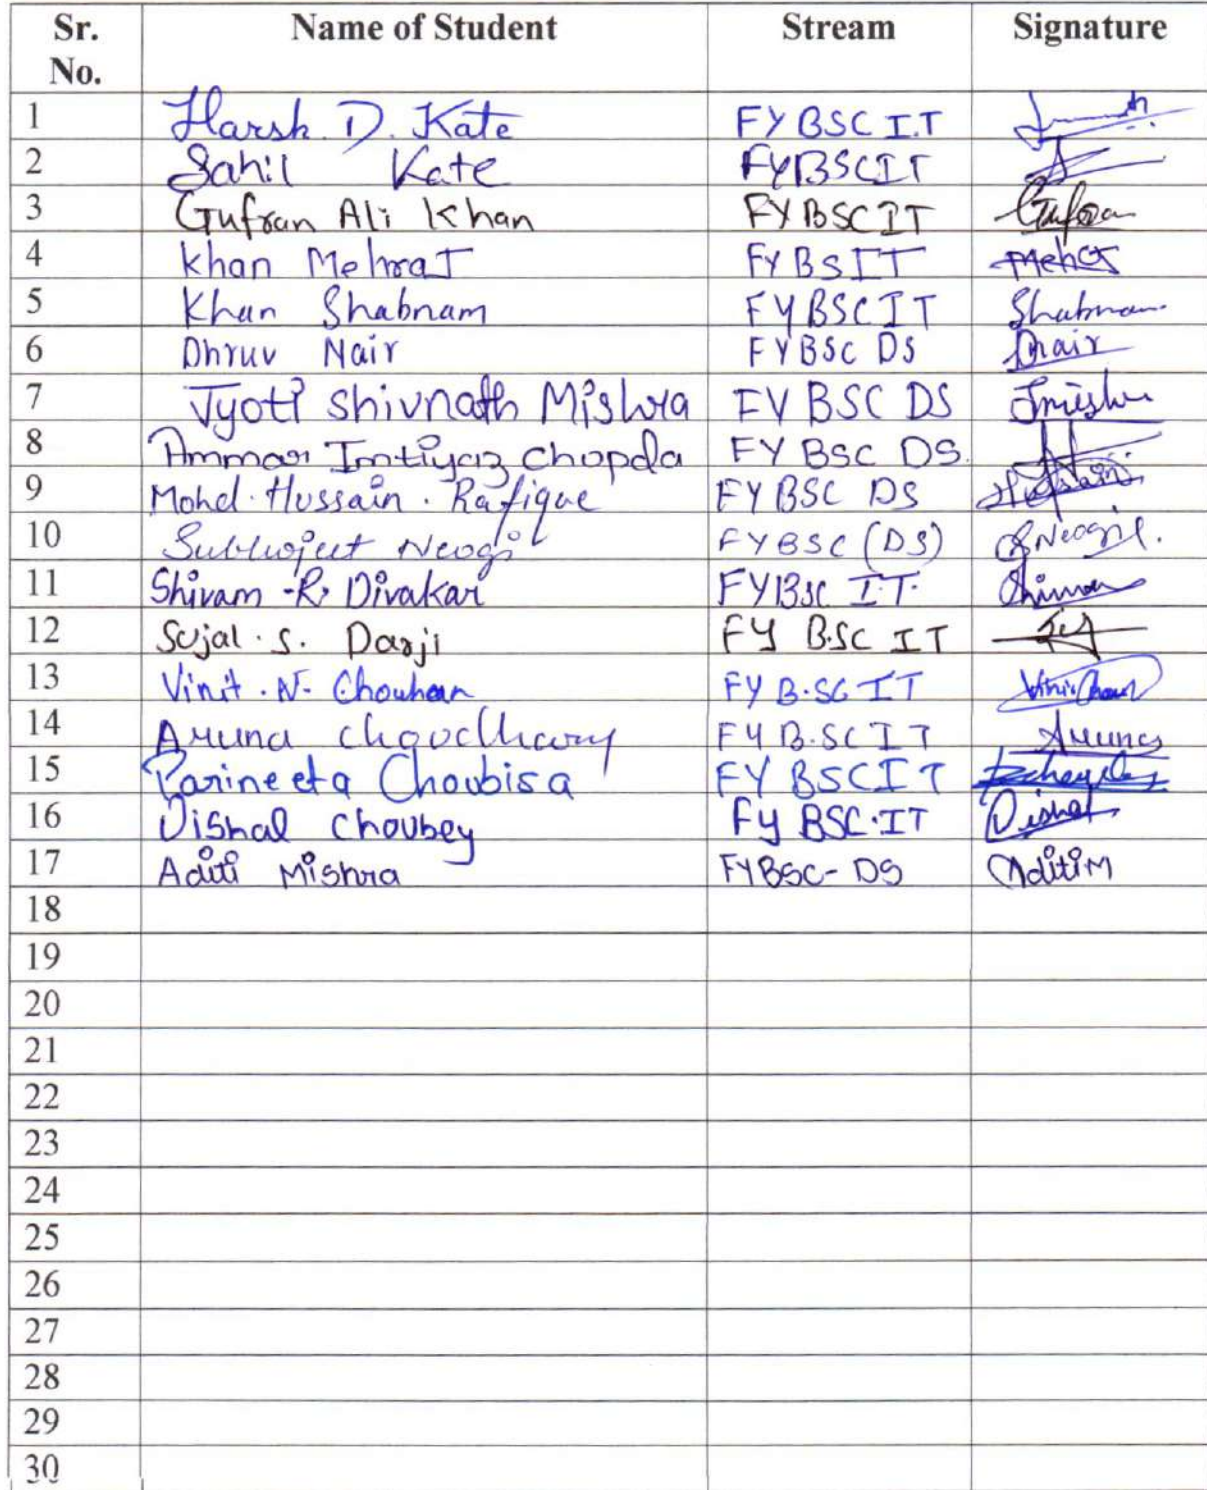 Sr. No. Name of Student Stream Signature
1 Harsh D. Kate FY BSC I.T
2 Sahil Kate FYBSCIT
3 Gufran Ali Khan FYBSCIT Gufran
4 Khan Mehraj FYBSIT Mehraj
5 Khan Shabnam FYBSCIT Shabnam
6 Dhruv Nair FYBSC DS Dnair
7 Jyoti Shivnath Mishra FY BSC DS Jmishra
8 Ammar Imtiyaz Chopda FY BSC DS.
9 Mohd. Hussain. Rafique FYBSC DS Hussain
10 Subhojeet Neogi FYBSC (DS) SNeogi.
11 Shivam -R. Divakar FYBSC I.T. Shivam
12 Sujal. S. Darji FY B.SC IT
13 Vinit. N. Chouhan FY B.SC IT
14 Aruna Choudhary FY B.SC IT Aruna
15 Parineeta Choubisa FY BSCIT
16 Vishal Choubey Fy BSC.IT Vishal
17 Aditi Mishra FYBSC-DS AditiM
18
19
20
21
22
23
24
25
26
27
28
29
30